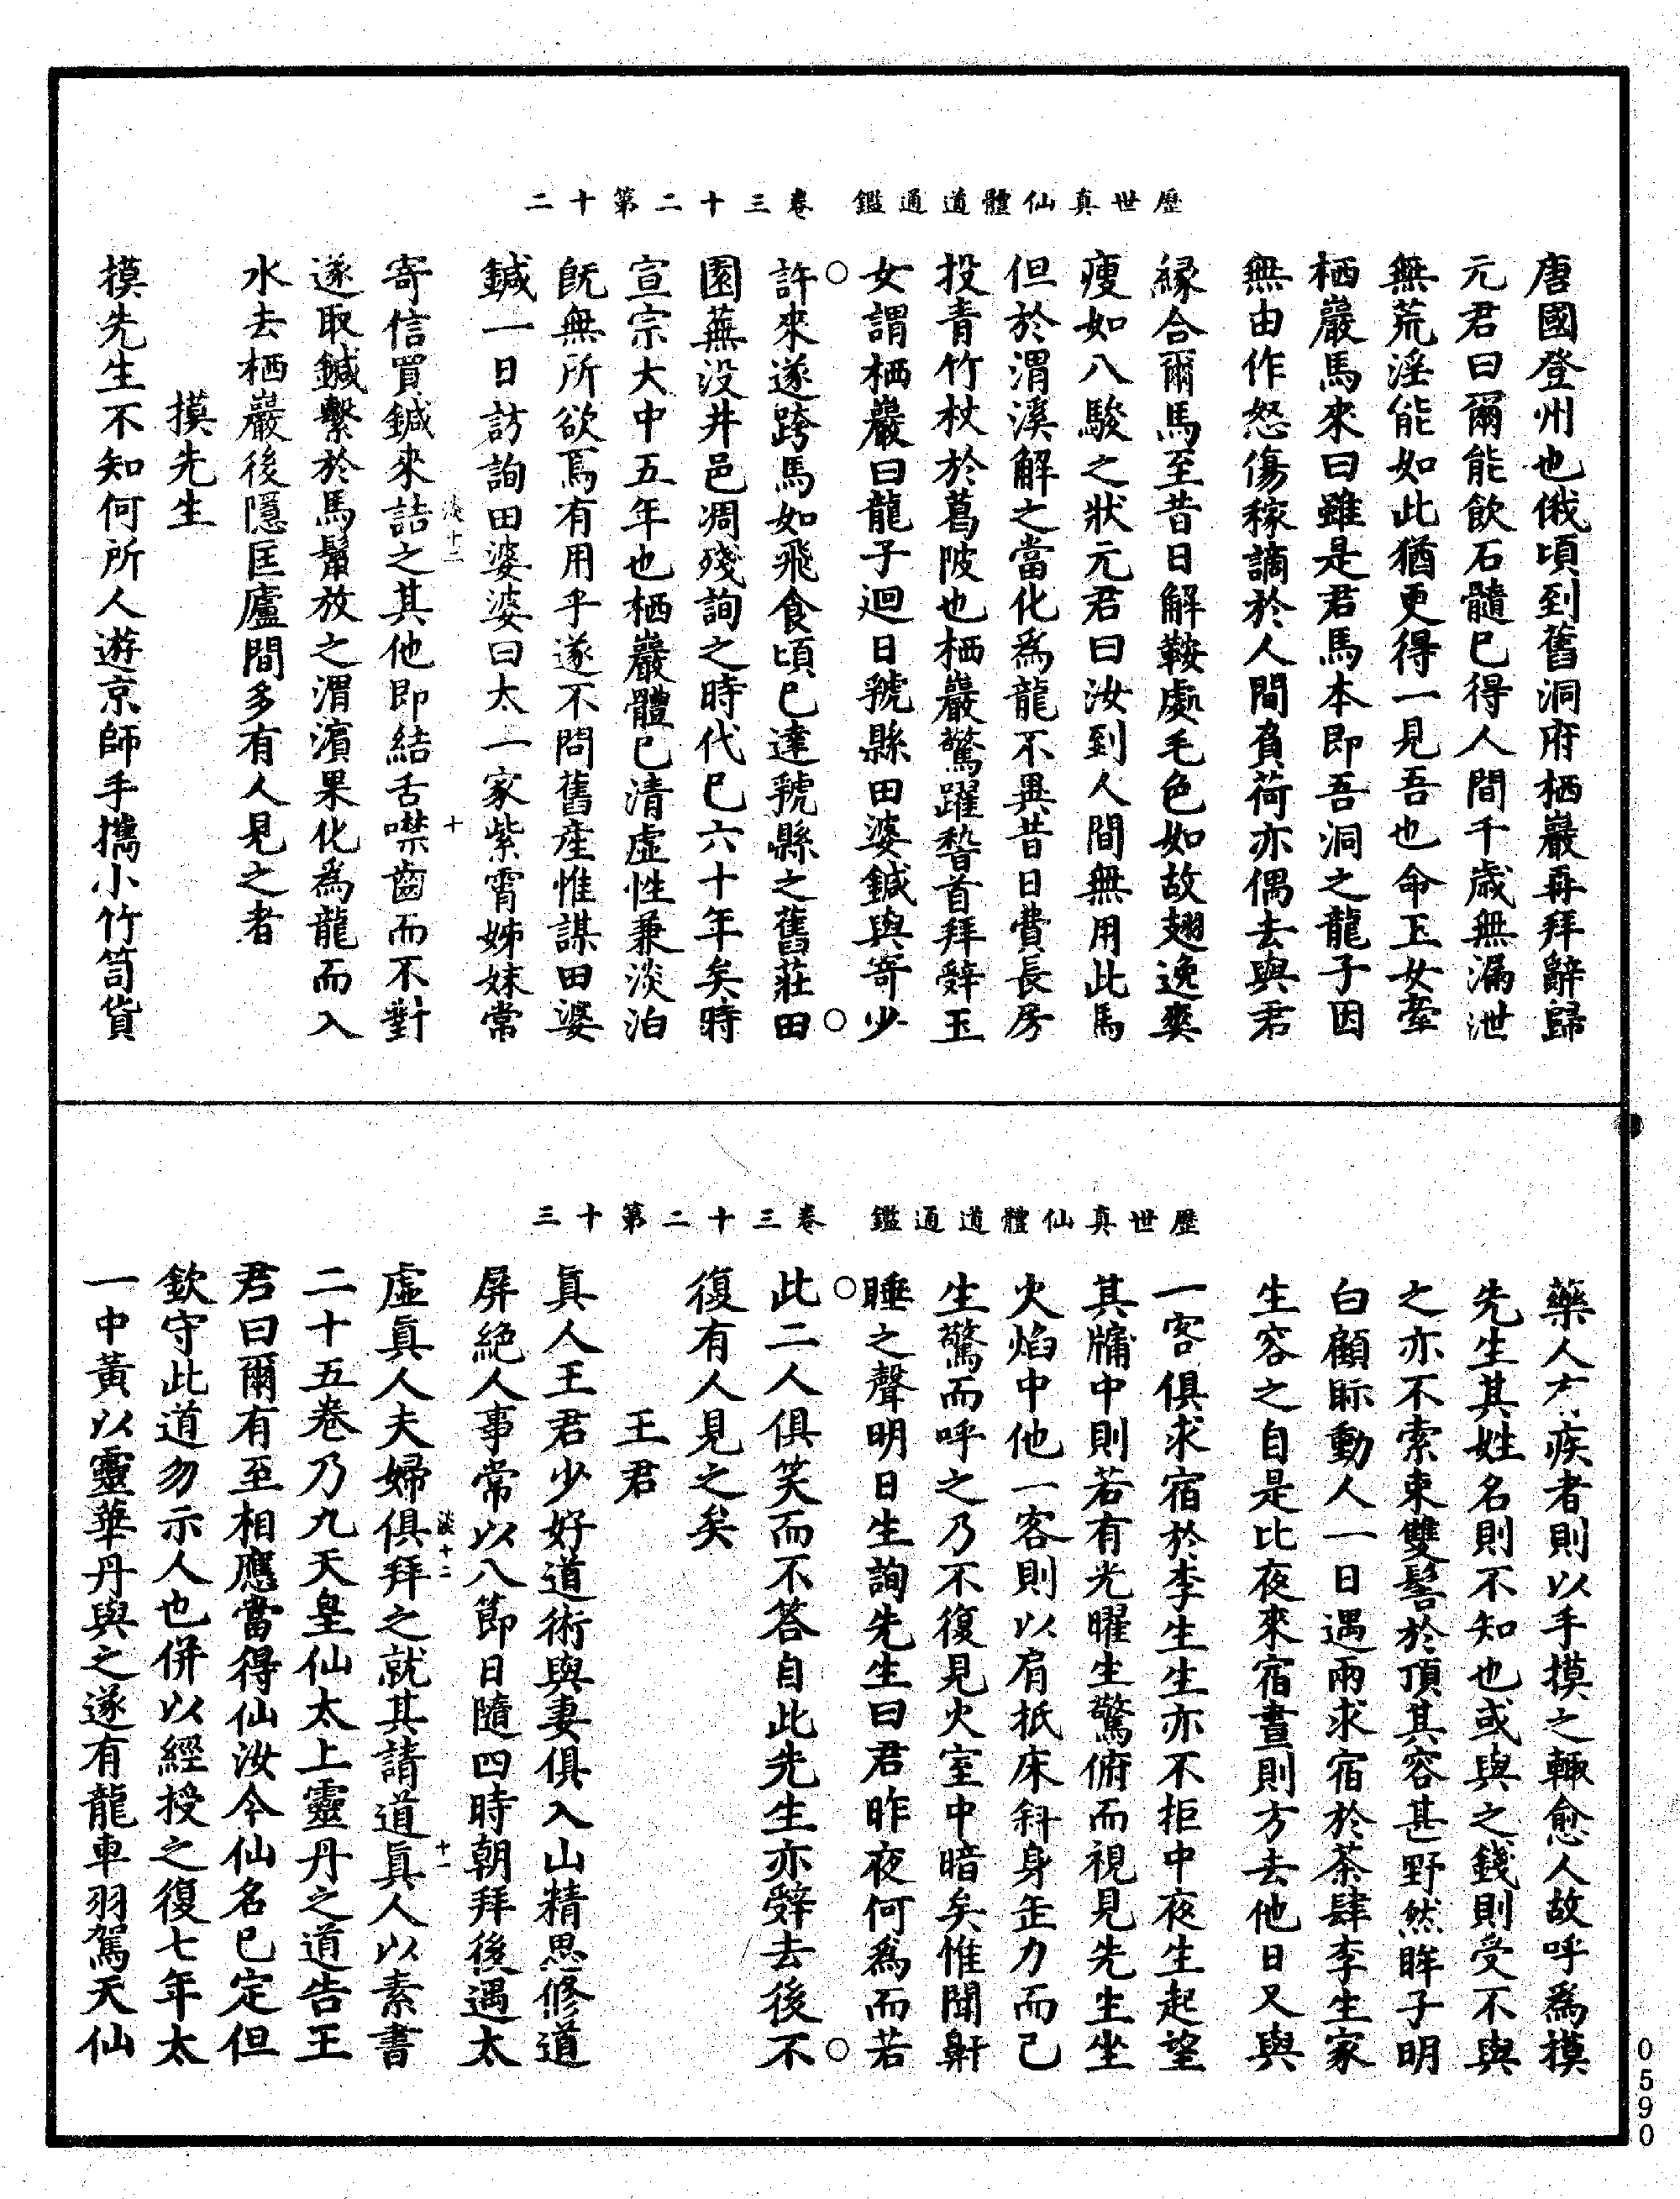 歷世真仙體道通鑑　卷三十二第十二
唐國登州也俄頃到舊洞府栖巖再拜辭歸
元君曰爾能飲石髓巳得人間千歲無漏泄
無荒淫能如此猶更得一見吾也命玉女牽
栖巖馬來曰雖是君馬本即吾洞之龍子因
無由作怒傷稼謫於人間負荷亦偶去與君
緣合爾馬至昔日解鞍處毛色如故翅逸奕
瘦如八駿之狀元君曰汝到人間無用此馬
但於渭溪解之當化為龍不異昔日費長房
投青竹杖於葛陂也栖巖驚躍稽首拜辤玉
女謂栖巖曰龍子迴日虢縣田婆鍼與寄少
許來遂跨馬如飛食頃已達虢縣之舊莊田
園蕪没井邑凋殘詢之時代巳六十年矣時
宣宗大中五年也栖巖體巳清虛性兼淡泊
旣無所欲焉有用乎遂不問舊產惟謀田婆
鍼一日訪詢田婆婆曰太一家紫霄姊妹常
淡十二　十
寄信買鍼來詰之其他即結舌噤齒而不對
遂取鍼繫於馬鬣放之渭濱果化為龍而入
水去栖巖後隱匡廬間多有人見之者
摸先生
摸先生不知何所人遊京師手攜小竹笥貨
歷世真仙體道通鑑　卷三十二第十三
藥人有疾者則以手摸之輙愈人故呼為摸
先生其姓名則不知也或與之錢則受不與
之亦不索束雙髻於頂其容甚野然眸子明
白顧眎動人一日遇雨求宿於茶肆李生家
生容之自是比夜來宿晝則方去他日又與
一客俱求宿於李生生亦不拒中夜生起望
其牗中則若有光曜生驚俯而視見先生坐
火焰中他一客則以肩抵床斜身歪力而已
生驚而呼之乃不復見火室中暗矣惟聞鼾
睡之聲明日生詢先生曰君昨夜何為而若
此二人俱笑而不答自此先生亦辤去後不
復有人見之矣
王君
真人王君少好道術與妻俱入山精思修道
屏絕人事常以八節日隨四時朝拜後遇太
淡十二　十一
虛真人夫婦俱拜之就其請道真人以素書
二十五卷乃九天皇仙太上靈丹之道告王
君曰爾有至相應當得仙汝今仙名巳定但
欽守此道勿示人也併以經授之復七年太
一中黃以靈華丹與之遂有龍車羽駕天仙
0590